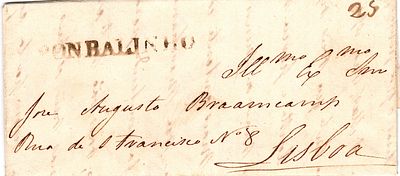 25
PONBALINHO
Illmo Exmo Snr
Jose Augusto Braamcamp
Rua de S Francisco No 8
Lisboa